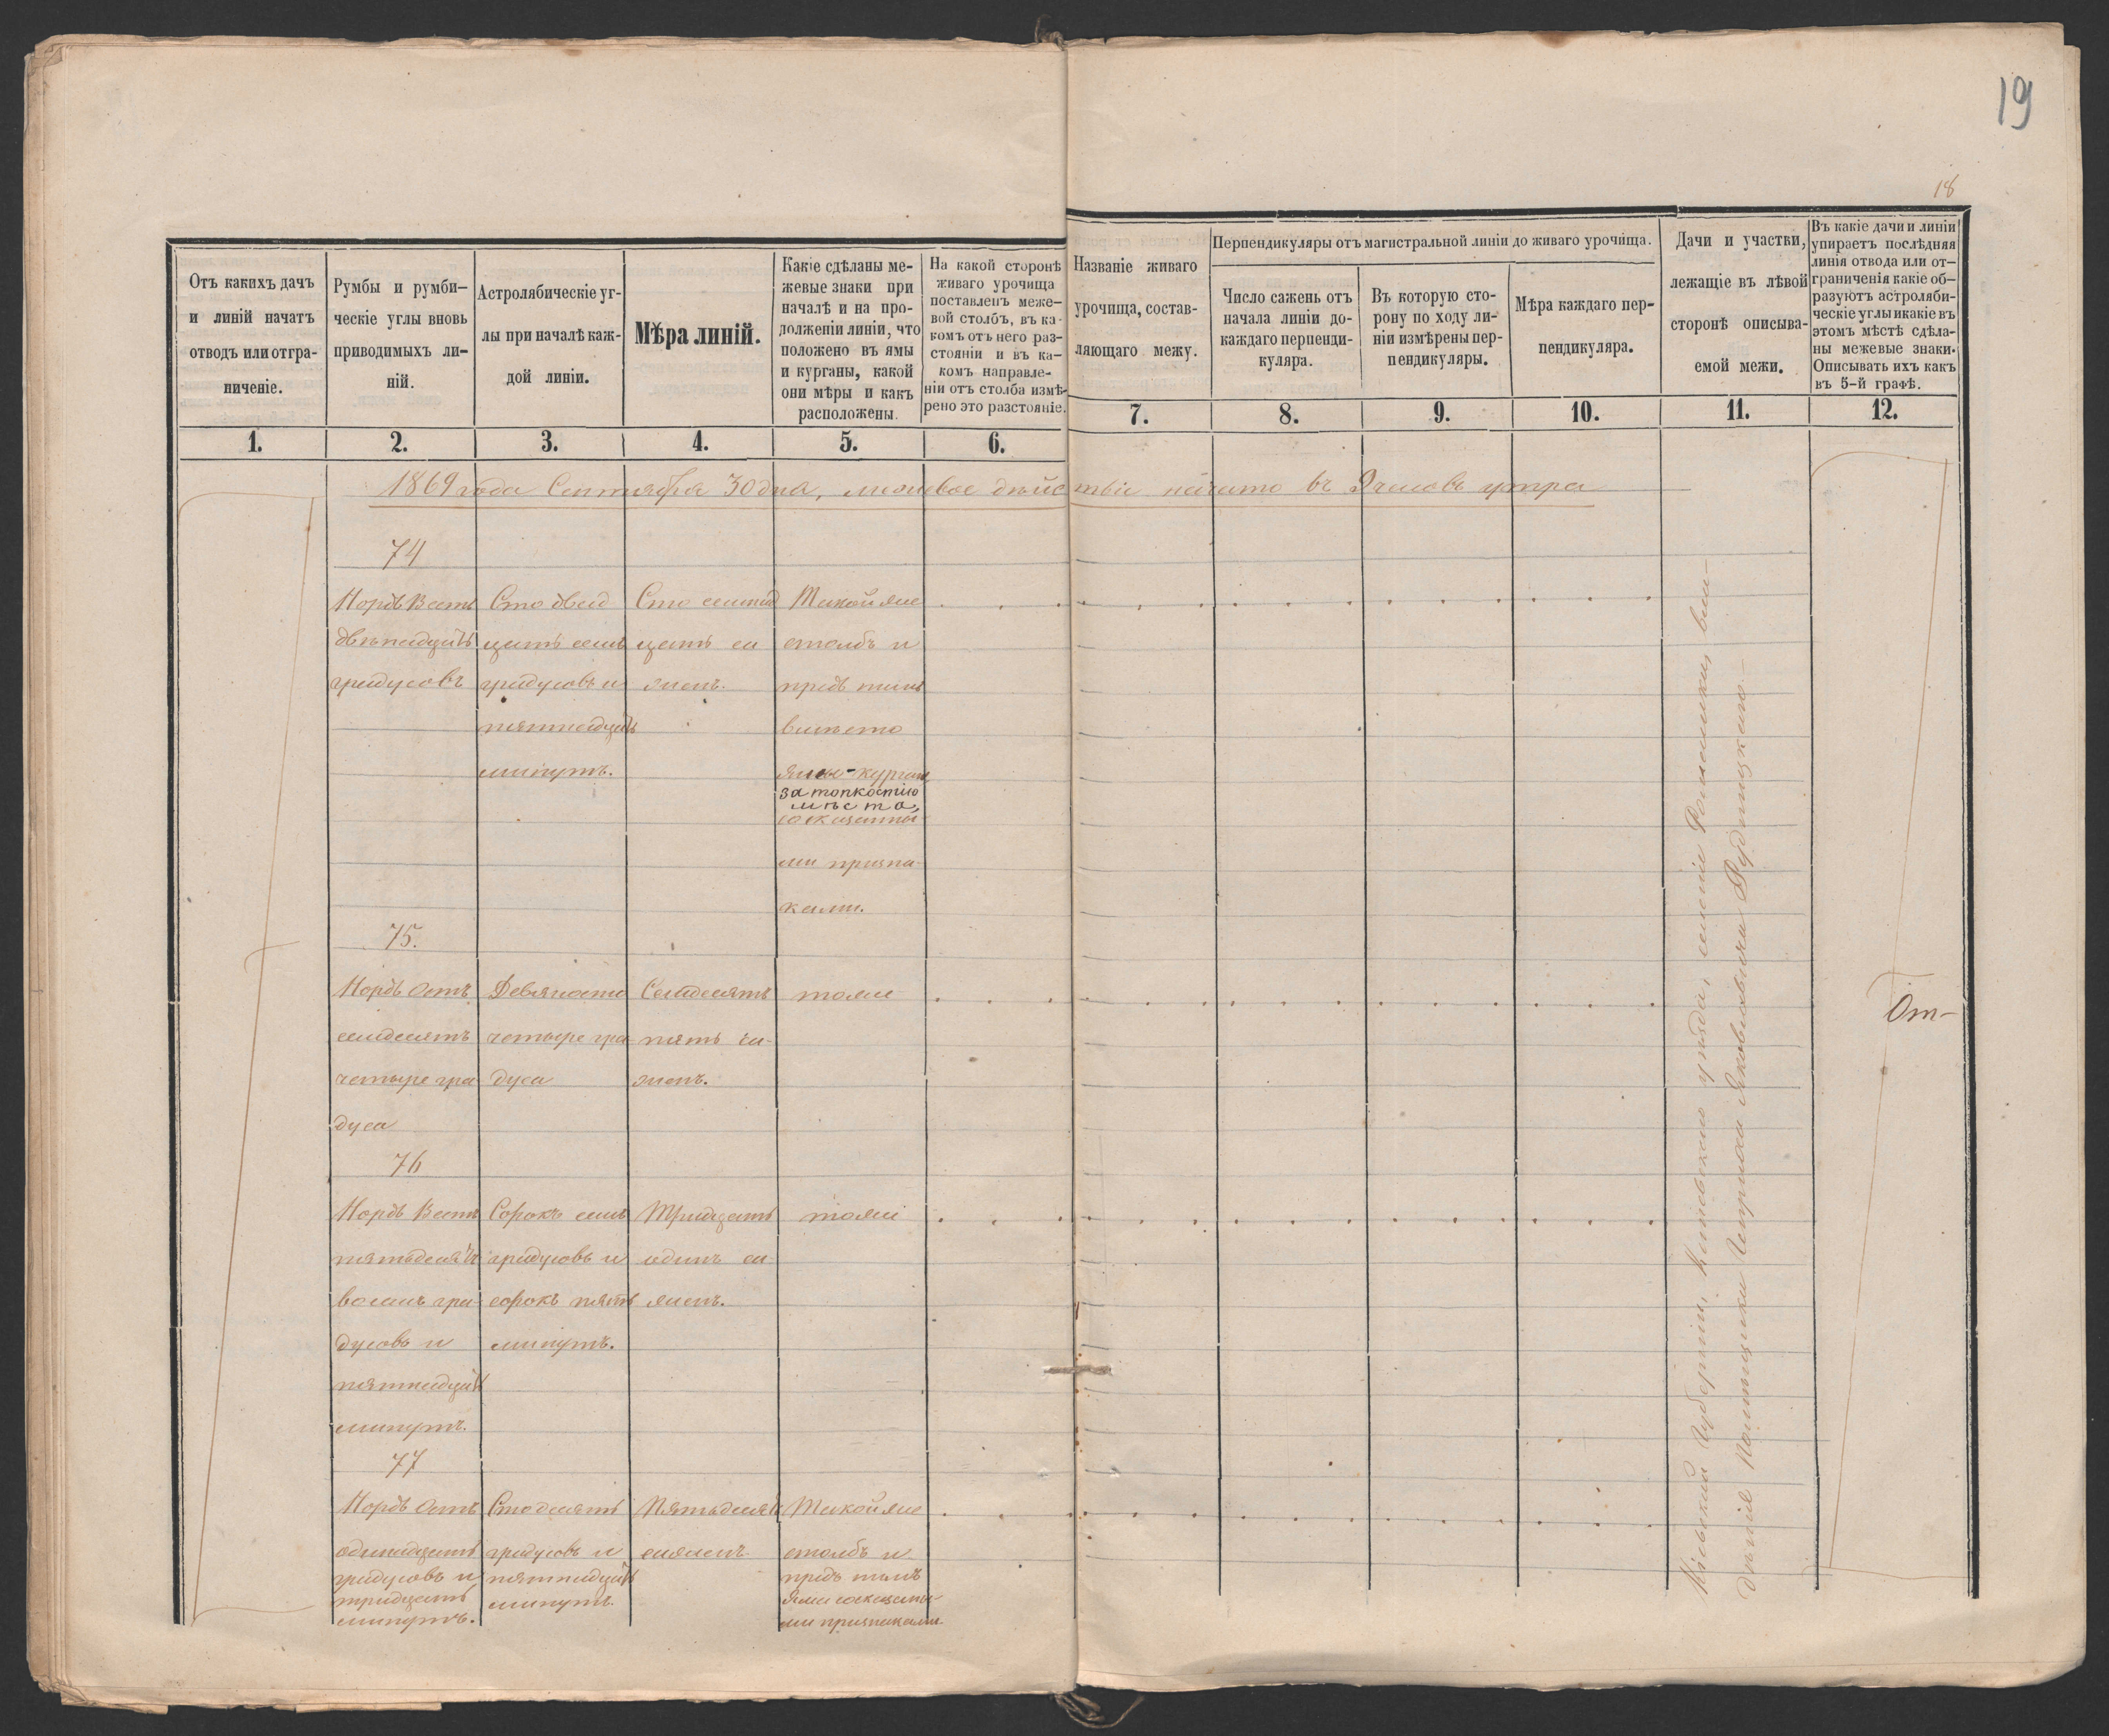 19
18
Отъ какихъ дачъ
и линій начатъ
отводъ или отгра-
ниченіе.
Румбы и румби-
ческіе углы вновь
приводимыхъ ли-
ній.
Астролябическіе уг-
лы при началѣ каж-
дой линіи.
Мѣра линій.
Какіе сдѣланы ме-
жевые знаки при
началѣ и на про-
долженіи линіи, что
положено въ ямы
и курганы, какой
они мѣры и какъ
расположены.
На какой сторонѣ
живаго урочища
поставленъ меже-
вой столбъ, въ ка-
комъ отъ него раз-
стояніи и въ ка-
комъ направле-
ніи отъ столба измѣ-
рено это разстояніе.
Названіе живаго
урочища, состав-
ляющаго межу.
Перпендикуляры отъ магистральной линіи до живаго урочища.
Число сажень отъ
начала линіи до-
каждаго перпенди-
куляра.
Въ которую сто-
рону по ходу ли-
ніи измѣрены пер-
пендикуляры.
Мѣра каждаго пер-
пендикуляра.
Дачи и участки,
лежащіе въ лѣвой
сторонѣ описыва-
емой межи.
Въ какіе дачи и линіи
упираетъ послѣдняя
линія отвода или от-
граниченія какіе об-
разуютъ астроляби-
ческіе углы и какіе въ
этомъ мѣстѣ сдѣла-
ны межевые знаки.
Описывать ихъ какъ
въ 5-й графѣ.
1. 2. 3. 4. 5. 6. 7. 8. 9. 10. 11. 12.
1869 года Сентября 30 дня, межевое дѣйствіе начато въ 9 часовъ утра
74
Нордъ Вестъ
двѣнадцать
градусовъ
Сто двад
цать семь
градусовъ и
пятнадцать
минутъ.
Сто семнад
цать са
женъ.
Такой же
столбъ и
предъ нимъ
вмѣсто
ямы-курганъ
за топкостію
мѣста,
со скщенны
ми призна-
ками.
75.
Нордъ Остъ
семдесятъ
четыре гра
дуса
Девяносто
четыре гра-
дуса
Семдесятъ
пять са-
женъ.
тоже
76
Нордъ Вестъ
пятьдесятъ
восемь гра-
дусовъ и
пятнадцать
минутъ.
Сорокъ семь
градусовъ и
сорокъ пять
минутъ.
Тридцать
одинъ са-
женъ.
тоже
77
Нордъ Остъ
одинадцать
градусовъ и
тридцать
минутъ.
Сто десять
градусовъ и
пятнадцать
минутъ.
Пятьдесятъ
саженъ.
Такой же
столбъ и
предъ нимъ
яма
ми признаками.
Кіевской Губерніи, уѣзда, селенія Ромашки, вла-
дѣнія Помѣщика Генриха Яковлевича
От-